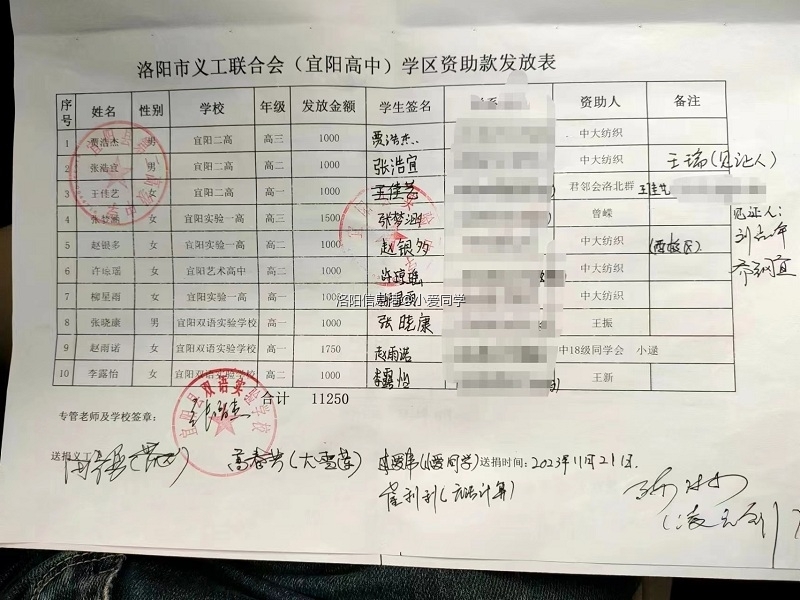 洛阳市义工联合会（宜阳高中）学区资助款发放表
序号 姓名 性别 学校 年级 发放金额 学生签名 资助人 备注
1 贾浩杰 男 宜阳二高 高三 1000 贾浩杰 中大纺织
2 张浩宜 男 宜阳二高 高二 1000 张浩宜 中大纺织 王瑞(见证人)
3 王佳艺 女 宜阳二高 高一 1000 王佳艺 君邻会洛北群
4 女 宜阳实验一高 高三 1500 曾嵘 见证人：
5 赵银多 女 宜阳实验一高 高二 1000 赵银多 中大纺织
6 许琼瑶 女 宜阳艺术高中 高二 1000 许琼瑶 中大纺织
7 柳星雨 女 宜阳实验一高 高一 1000 中大纺织
洛阳信息港@小爱同学
8 张晓康 男 宜阳双语实验学校 高一 1000 张晓康 王振
9 赵雨诺 女 宜阳双语实验学校 高一 1750 赵雨诺 中18级同学会 小逯
10 李露怡 女 宜阳双语实验学校 高二 1000 李露怡 王新
合计 11250
专管老师及学校签章：
送捐义工 高春芳(大雪莲) (小爱同学) 送捐时间：2023年11月21日
崔利利